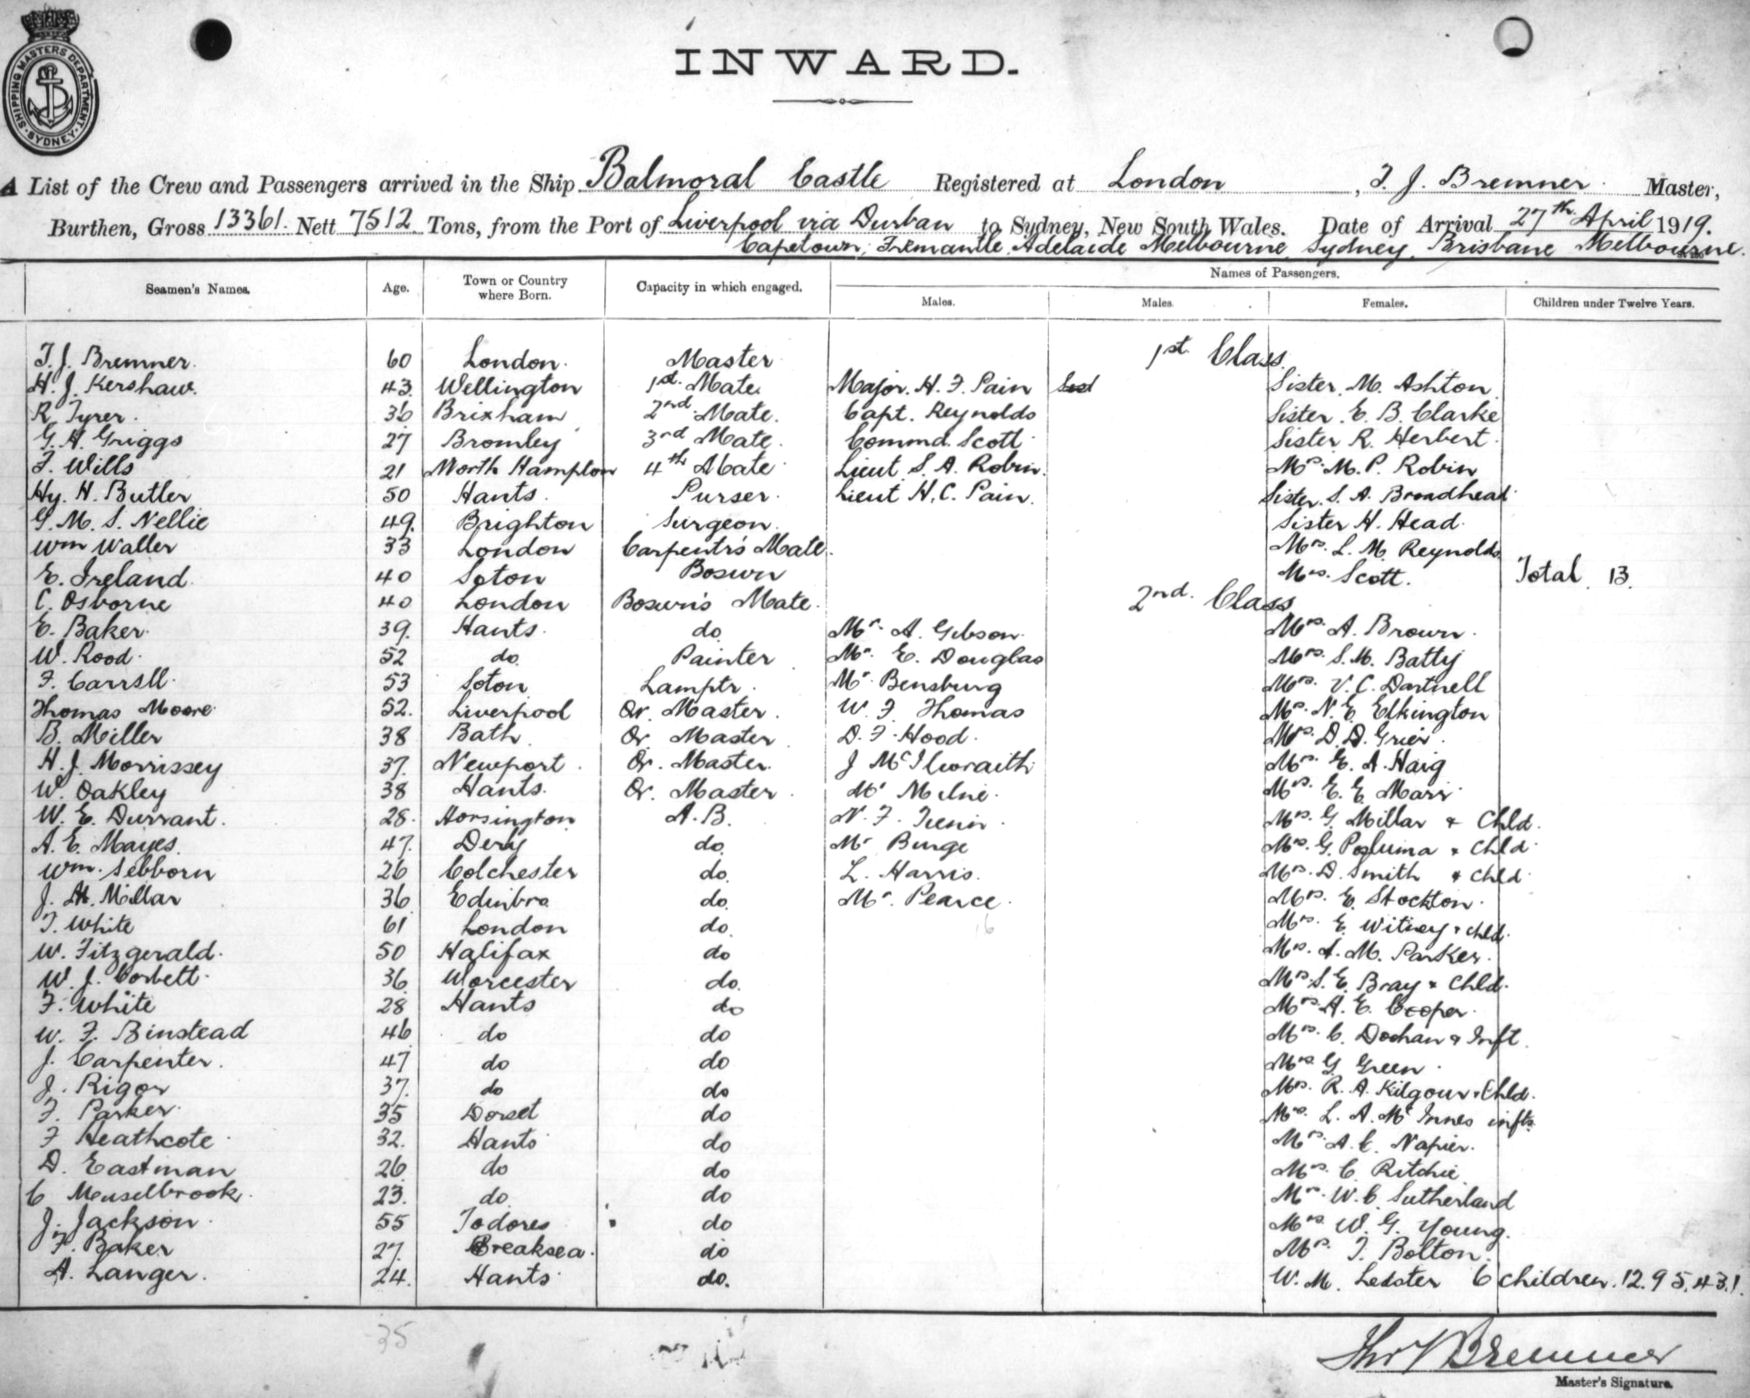 SHIPPING MASTERS DEPARTMENT · SYDNEY ·
INWARD.
A List of the Crew and Passengers arrived in the Ship Balmoral Castle Registered at London, T. J. Bremner Master,
Burthen, Gross 13361. Nett 7512 Tons, from the Port of Liverpool via Durban to Sydney, New South Wales. Date of Arrival 27th April 1919.
Capetown, Fremantle Adelaide Melbourne Sydney, Brisbane Melbourne.
Names of Passengers.
Seamen's Names. Age. Town or Country where Born. Capacity in which engaged. Males. Males. Females. Children under Twelve Years.
1st Class.
T. J. Bremner. 60 London. Master
H. J. Kershaw. 43. Wellington 1st Mate. Major. H. F. Pain Sister. M. Ashton
R Tyrer. 36 Brixham 2nd Mate. Capt. Reynolds Sister. E. B. Clarke
G. H. Griggs 27 Bromley 3rd Mate. Commd. Scott Sister R. Herbert.
T. Wills 21 North Hampton 4th Mate Lieut S. A. Robin. Mrs. M. P. Robin
Hy. H. Butler 50 Hants. Purser. Lieut H. C. Pain. Sister. S. A. Broadhead
G. M. S. Nellie 49. Brighton Surgeon. Sister H. Head.
Wm Waller 33 London Carpentr's Mate. Mrs. L. M. Reynolds
E. Ireland. 40 Soton Boswn Mrs. Scott. Total 13.
2nd. Class
C. Osborne 40 London Boswn's Mate.
E. Baker. 39. Hants. do Mr. A. Gibson. Mrs A. Brown.
W. Rood. 52 do. Painter Mr. E. Douglas Mrs S. M. Batty
F. Carrsll. 53 Soton Lamptr. Mr Bensburg Mrs. V. C. Dartnell
Thomas Moore. 52. Liverpool Qr. Master. W. F. Thomas Mrs. N. E. Elkington
B. Miller 38 Bath Qr Master. D. F. Hood. Mrs. D. D. Grier.
H. J. Morrissey 37. Newport. Qr. Master. J McIlwraith Mrs. E. A. Haig
W. Oakley 38 Hants. Qr. Master. Mr Milne. Mrs. E. E. Marr
W. E. Durrant. 28. Horsington A. B. N. F. Mrs. G. Millar & Chld.
A. E. Mayes. 47. Dery do. Mr Burge Mrs. G. Posluma & Chld
Wm. Sebborn 26 Colchester do. L. Harris. Mrs. D. Smith & chld
J. H. Millar 36 Edinbro do. Mr. Pearce. Mrs. E. Stockton.
T. White 61 London do. Mrs. E. Witney & chld.
W. Fitzgerald. 50 Halifax do Mrs. A. M. Parker.
W. J. Corbett. 36. Worcester do. Mrs S. E. Bray & Chld.
F. White 28 Hants do Mrs. A. E. Cooper.
W. F. Binstead 46 do do Mrs. C. Doohan & Inft.
J. Carpenter. 47 do do Mrs G. Green.
J. Rigor 37. do do Mrs. R. A. Kilgour & Chld.
F. Parker. 35 Dorset do Mrs. L. A. McInnes infts.
F Heathcote. 32. Hants do Mrs. A. C. Napier.
D. Eastman 26 do do Mrs. C. Ritchie
C Muselbrook. 23. do. do Mrs. W. C. Sutherland
J. Jackson. 55 Todores do Mrs W. G. Young.
F. Baker 27. Breaksea. do Mrs. T. Bolton.
A. Langer. 24. Hants. do. W. M. Lesster 6 children. 12. 9 5. 4 3. 1.
35
Thos J Bremner
Master's Signature.